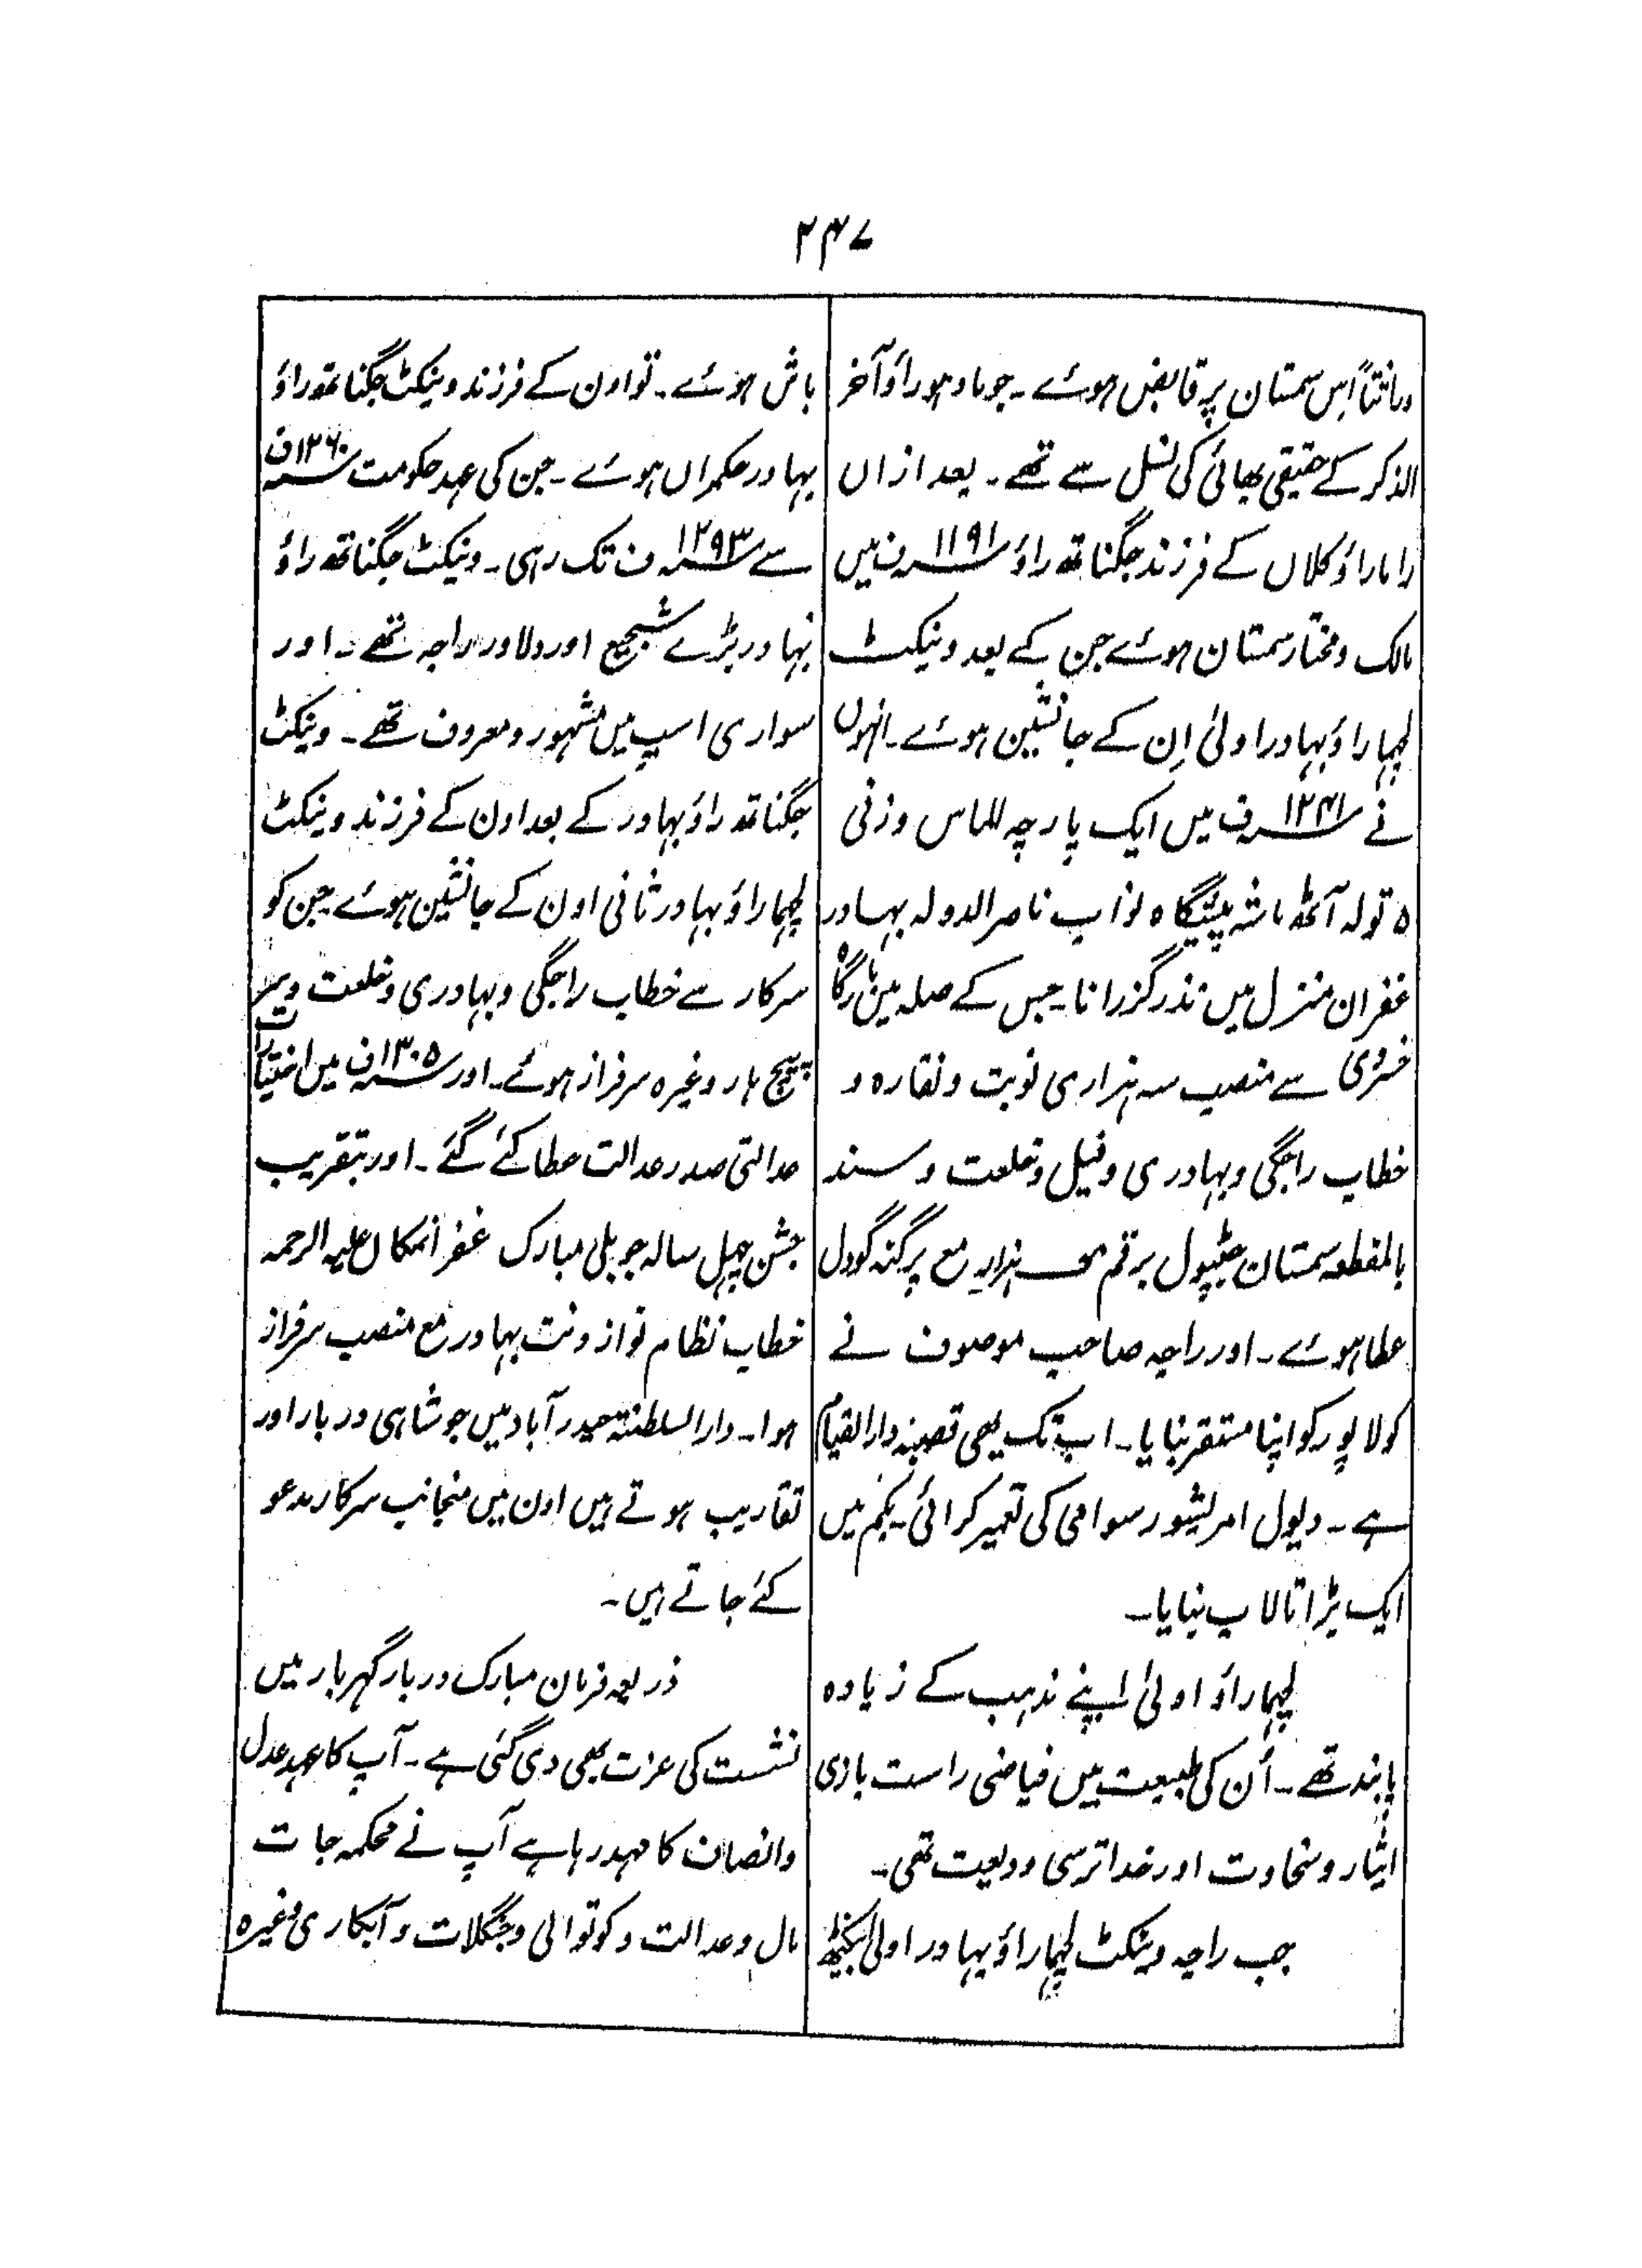 ۲۴۷
وراثتاً اس سمستان پر قابض ہوئے۔ جو مادہو راؤ آخر
الذکر کے حقیقی بھائی کی نسل سے تھے۔ بعد ازاں
راما راؤ کلاں کے فرزند جگناتھ راؤ ۱۱۹۱؁ ف میں
مالک و مختار سمستان ہوئے جن کے بعد وینکٹ
لچھما راؤ بہادر اولیٰ اِن کے جانشین ہوئے۔ انہوں
نے ۱۲۴۱؁ ف میں ایک پارچہ الماس وزنی
۵ تولہ آٹھ ماشہ پیشگاہ نواب ناصر الدولہ بہادر
غفران منزل میں نذر گزرانا۔ جس کے صلہ میں بارگاہ
خسروی سے منصب سہ ہزاری نوبت و نقارہ و
خطاب راجگی و بہادری و فیل و خلعت و سند
بالمقطعہ سمستان جٹپول برقم ہزار مع پرگنہ گودل
عطا ہوئے۔ اور راجہ صاحب موصوف نے
کولا پور کو اپنا مستقر بنایا۔ اب تک یہی قصبہ دار القیام
ہے۔ دیول امریشور سوامی کی تعمیر کرائی۔ یکم میں
ایک بڑا تالاب بنایا۔
لچھما راؤ اولیٰ اپنے مذہب کے زیادہ
پابند تھے۔ اُن کی طبیعت میں فیاضی راست بازی
ایثار و سخاوت اور خدا ترسی ودیعت تھی۔
جب راجہ وینکٹ لچھما راؤ بہادر اولیٰ بیکنٹھ
باش ہوئے۔ تو اون کے فرزند وینکٹ جگناتھ راؤ
بہادر حکمراں ہوئے۔ جن کی عہد حکومت ۱۲۶۰؁ ف
سے ۱۲۹۳؁ ف تک رہی۔ وینکٹ جگناتھ راؤ
بہادر بڑے شجیع اور دلاور راجہ تھے۔ اور
سواری اسپ میں مشہور و معروف تھے۔ وینکٹ
جگناتھ راؤ بہادر کے بعد اون کے فرزند وینکٹ
لچھما راؤ بہادر ثانی اون کے جانشین ہوئے جن کو
سرکار سے خطاب راجگی و بہادری و خلعت و سر
پیچ ہار وغیرہ سرفراز ہوئے۔ اور ۱۳۰۵؁ ف میں اختیارات
عدالتی صدر عدالت عطا کئے گئے۔ اور بتقریب
جشن چہل سالہ جوبلی مبارک غفرانمکان علیہ الرحمہ
خطاب نظام نواز ونت بہادر مع منصب سرفراز
ہوا۔ دار السلطنتہ حیدرآباد میں جو شاہی دربار اور
تقاریب ہوتے ہیں اون میں منجانب سرکار مدعو
کئے جاتے ہیں۔
ذریعہ فرمان مبارک دربار گہر بار میں
نشست کی عزت بھی دی گئی ہے۔ آپ کا عہد عدل
وانصاف کا عہد رہا ہے آپ نے محکمہ جات
مال و عدالت و کوتوالی و جنگلات و آبکاری وغیرہ